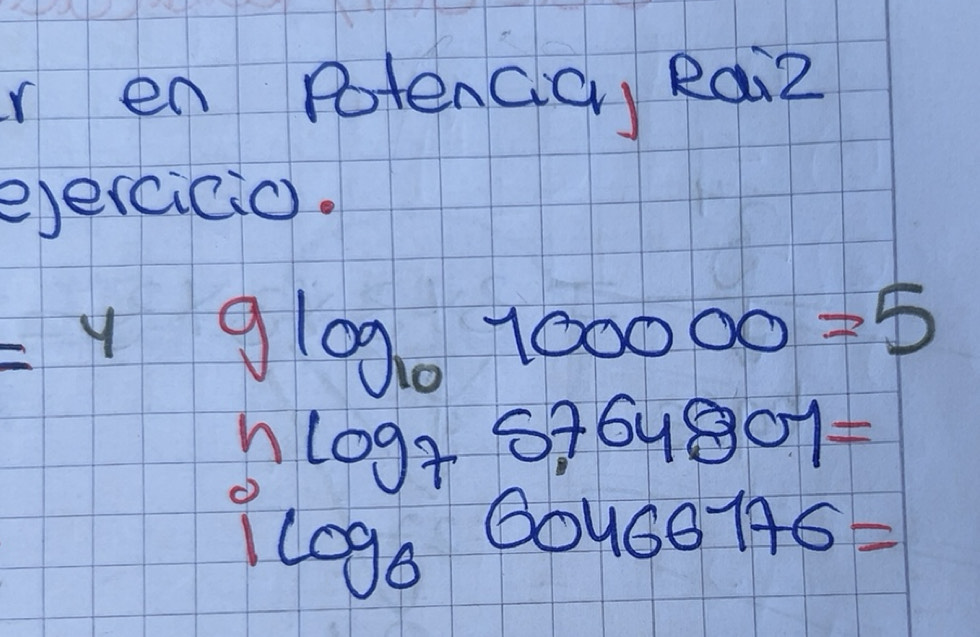 r en Potencia, Raiz
ejercicio.
= 4 g log10 100000 = 5
h log7 5,764801 =
i log6 60466176 =